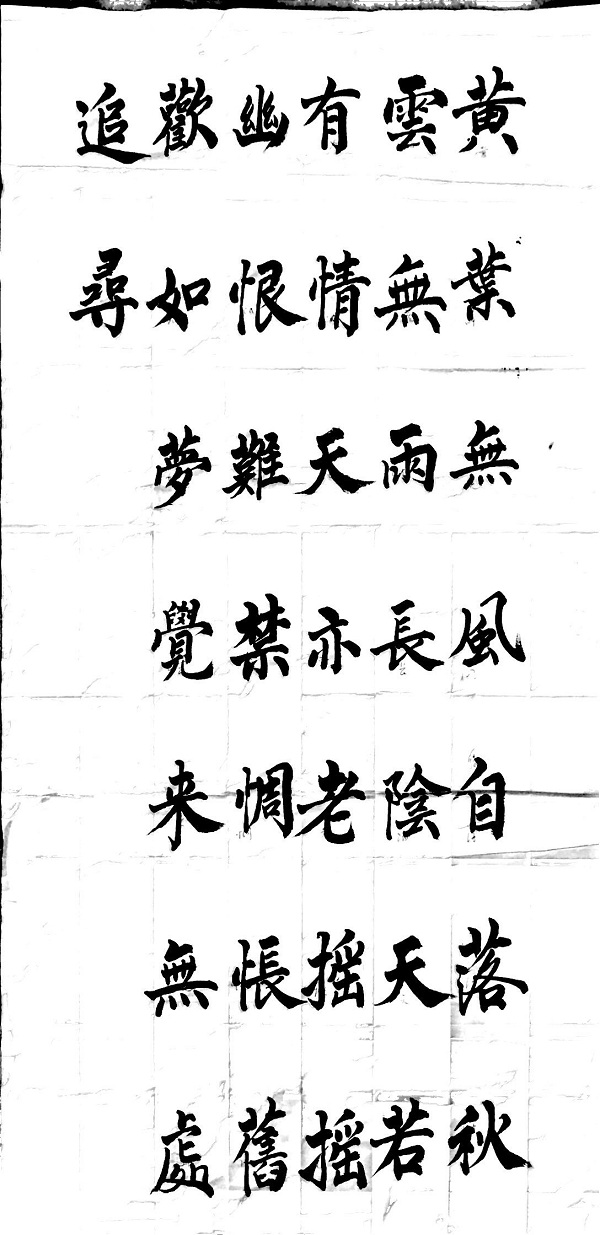 黄葉無風自落秋
雲無雨長陰天若
有情天亦老摇摇
幽恨難禁惆悵舊
歡如夢覺来無處
追尋